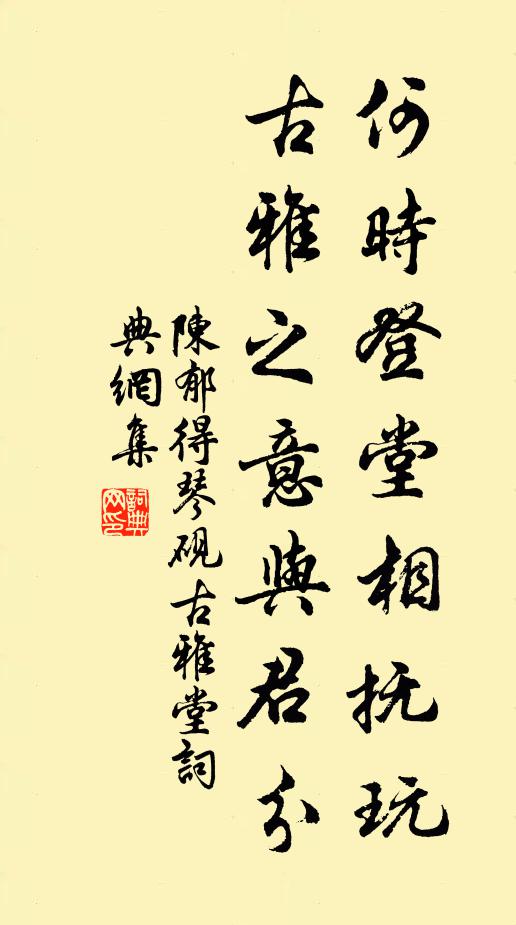 何時登堂相抚玩
古雅之意與君分
陳郁得琴硯古雅堂詞
典網集
詞典網印